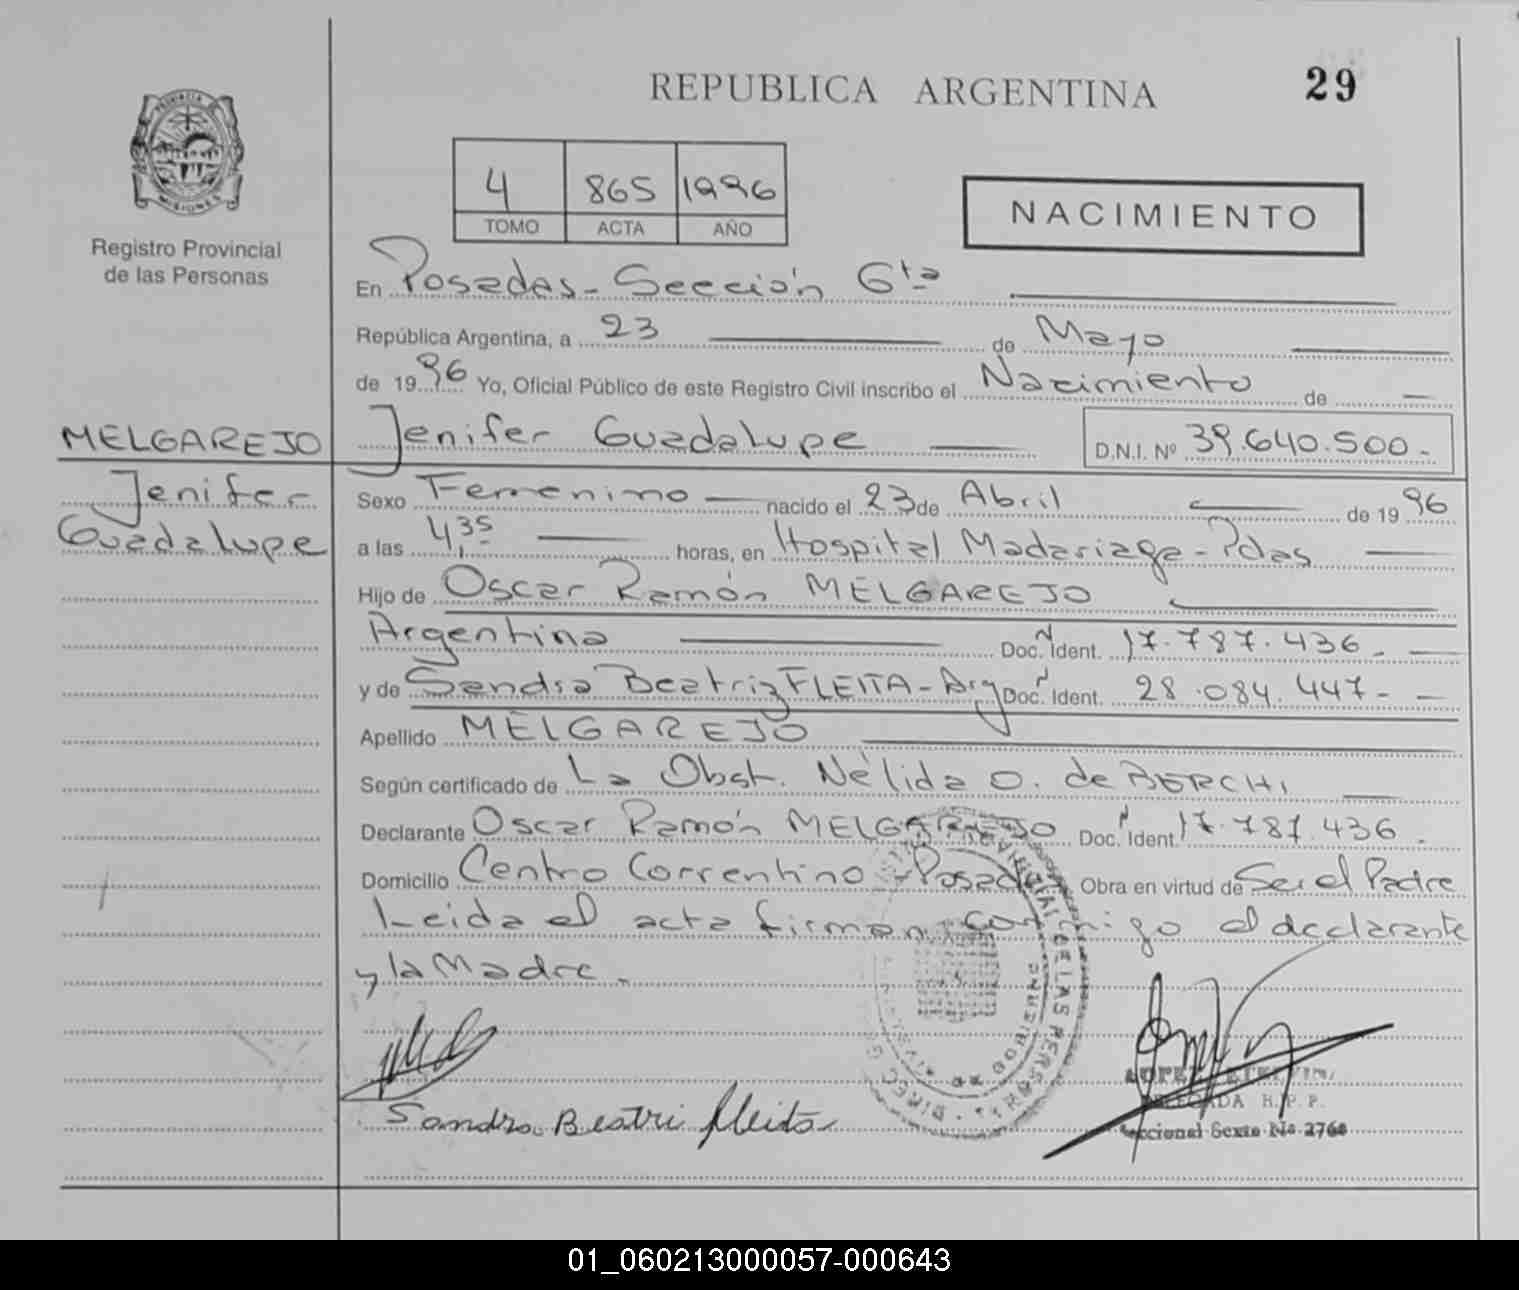 REPUBLICA ARGENTINA
29
PROVINCIA DE
MISIONES
Registro Provincial
de las Personas
4 865 1996
TOMO ACTA AÑO
NACIMIENTO
En Posadas - Sección 6ta
República Argentina, a 23 de Mayo
de 1996 Yo, Oficial Público de este Registro Civil inscribo el Nacimiento de
MELGAREJO
Jenifer
Guadalupe
Jenifer Guadalupe D.N.I. Nº 39.640.500.-
Sexo Femenino nacido el 23 de Abril de 1996
a las 4,35 horas, en Hospital Madariaga - Pdas
Hijo de Oscar Ramón MELGAREJO
Argentina Doc. Ident. 17.787.436.-
y de Sandra Beatriz FLEITA - Arg Doc. Ident. 28.084.447.-
Apellido MELGAREJO
Según certificado de La Obst. Nélida O. de BERCHI
Declarante Oscar Ramón MELGAREJO Doc. Ident. 17.787.436.
Domicilio Centro Correntino - Posadas Obra en virtud de Ser el Padre
Leida el acta firman conmigo el declarante
y la Madre.
Sandra Beatri fleita
DE LAS PERSONAS
DELEGADA R. P. P.
Seccional Sexta Nº 2768
01_060213000057-000643